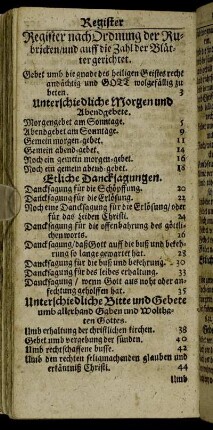 Register
Register nach Ordnung der Ru-
bricken/und auff die Zahl der Blät-
ter gerichtet.
Gebet umb die gnade des heiligen Geistes recht
andächtig und GOTT wolgefällig zu
beten. 3
Unterschiedliche Morgen und
Abendgebete.
Morgengebet am Sontage. 5
Abendgebet am Sontage. 9
Gemein morgen-gebet. 11
Gemein abend-gebet. 14
Noch ein gemein morgen-gebet. 16
Noch ein gemein abend-gebet. 18
Etliche Dancksagungen.
Dancksagung für die Schöpffung. 20
Dancksagung für die Erlösung. 22
Noch eine Dancksagung für die Erlösung/oder
für das Leiden Christi. 24
Dancksagung für die offenbahrung des göttli-
chen worts. 26
Dancksagung/daß Gott auff die buß und bekeh-
rung so lange gewartet hat. 28
Dancksagung für die buß und bekehrung. 30
Dancksagung für des leibes erhaltung. 33
Dancksagung / wenn Gott aus noht oder an-
fechtung geholffen hat. 35
Unterschiedliche Bitte und Gebete
umb allerhand Gaben und Woltha-
ten Gottes.
Umb erhaltung der christlichen kirchen. 38
Gebet umb vergebung der sünden. 40
Umb rechtschaffene busse. 42
Umb den rechten seligmachenden glauben und
erkäntniß Christi. 44
Umb